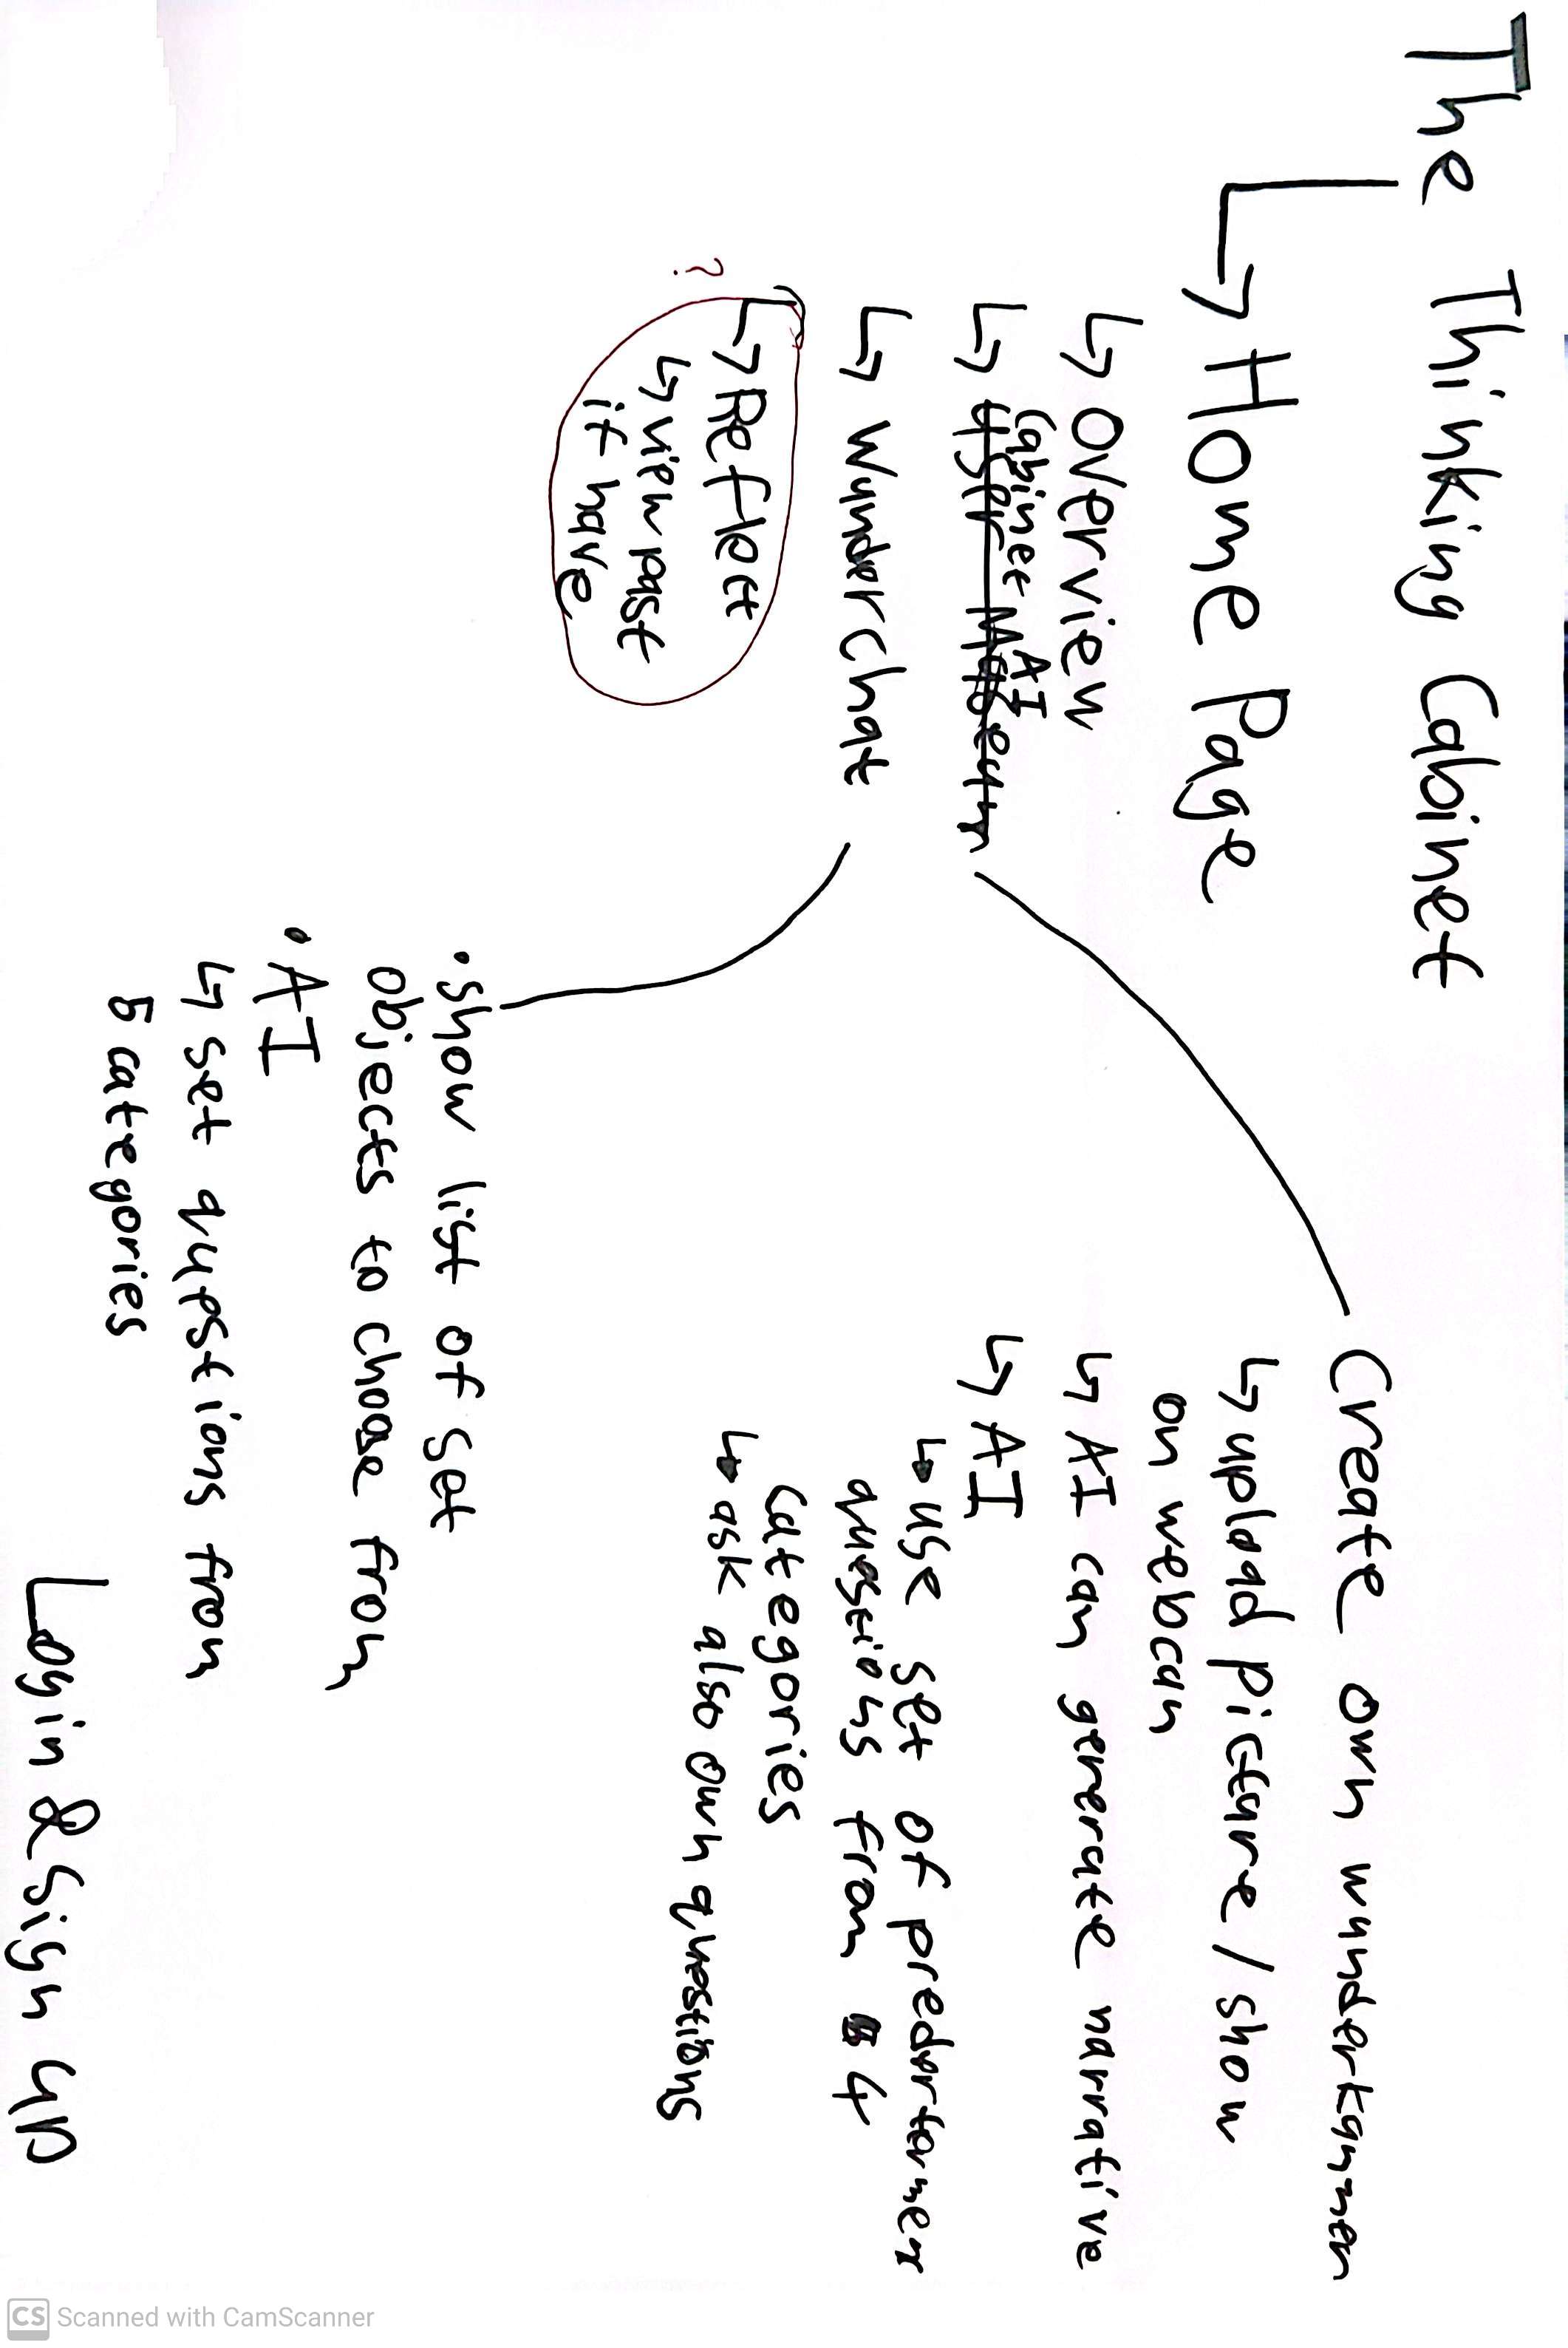 The Thinking Cabinet
↳ Home Page
↳ Overview
Cabinet AI
↳ User Museum
↳ Wunderchat
↳ Reflect
?
↳ view past
if have
Create own wunderkammen
↳ upload picture / show
on webcam
↳ AI can generate narrative
↳ AI
↳ use set of
questions from 4
categories
↳ ask also own questions
• show list of set
objects to choose from
• AI
↳ set questions from
5 categories
Login & Sign up
CS Scanned with CamScanner